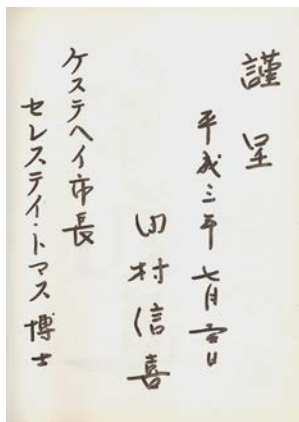 謹呈
平成三年七月
村信喜
ケステヘイ市長
セレステイ・トマス博士